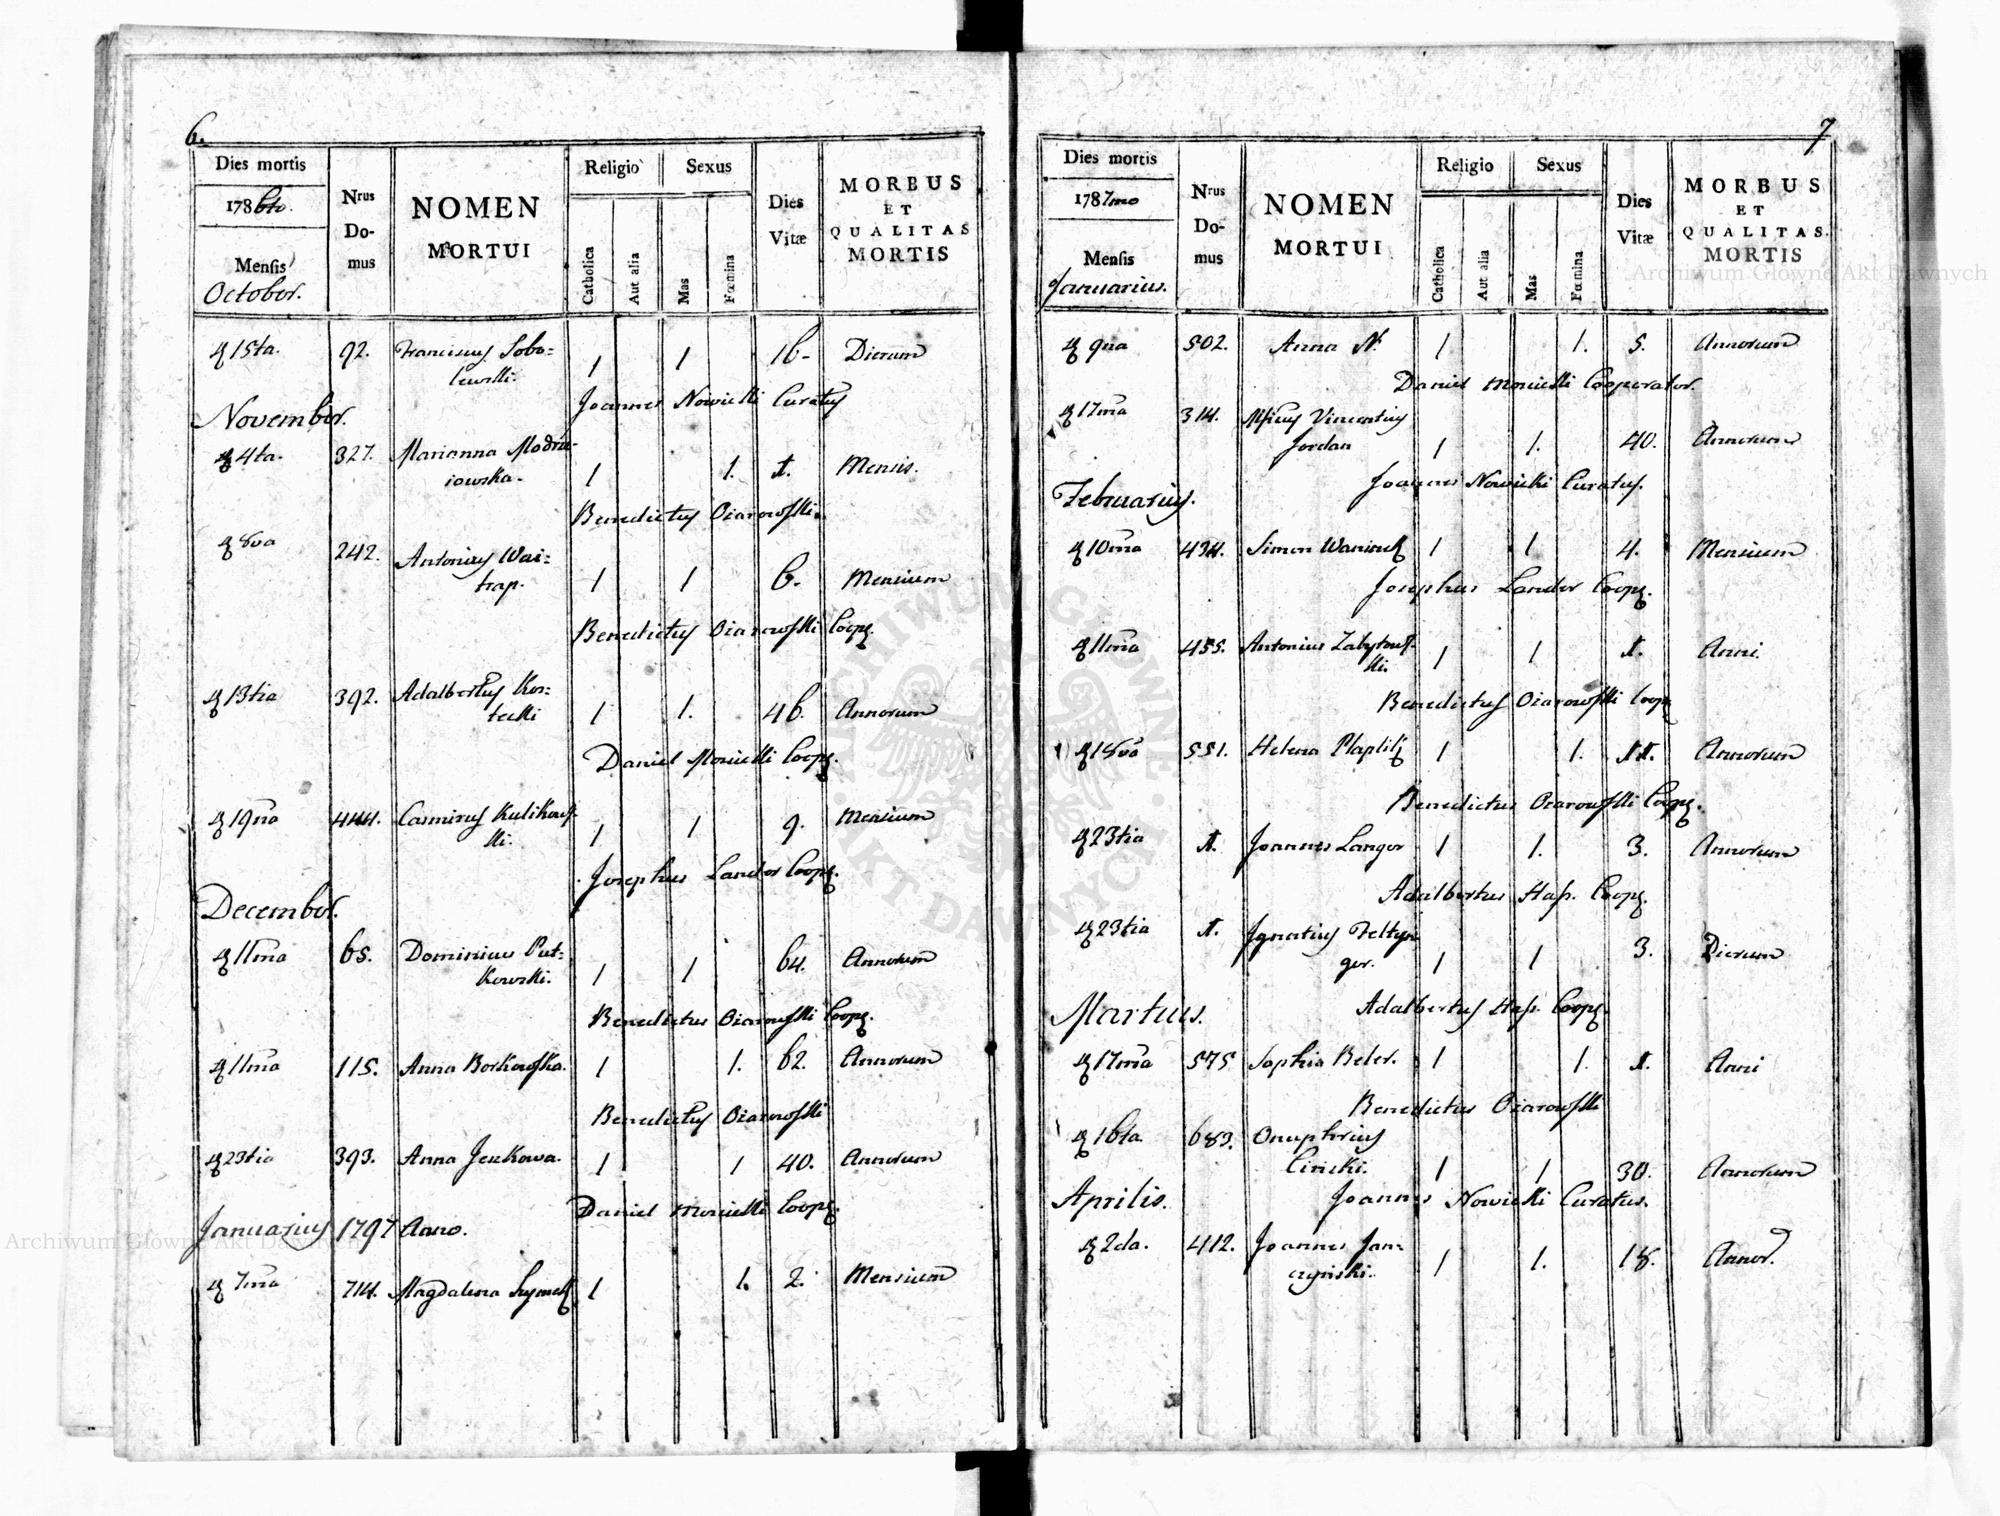 6.
Dies mortis
1786to.
Mensis
October.
Nrus
Do-
mus
NOMEN
MORTUI
Religio
Catholica
Aut alia
Sexus
Mas
Fœmina
Dies
Vitæ
MORBUS
ET
QUALITAS
MORTIS
15ta. 92. Franciscus Sobo=
lewski. 1 1 16- Dierum
Joannes Nowicki Curatus
November.
4ta. 327. Marianna
iowska. 1 1. 1. Mensis.
Benedictus Ozarowski.
8va 242. Antonius Wai=
trap. 1 1 6. Mensium
Benedictus Ozarowski Coop.
13tia 392. Adalbertus Kos=
tecki 1 1. 46. Annorum
Daniel Monicki Coop.
19na 444. Casimirus Kulikows
ki. 1 1 9. Mensium
Josephus Landor Coop.
December.
11ma 65. Dominicus Put=
kowski. 1 1 64. Annorum
Benedictus Ozarowski Coop.
11ma 115. Anna Borkowska. 1 1. 62. Annorum
Benedictus Ozarowski
23tia 393. Anna Jenkowa. 1 1 40. Annorum
Daniel Monicki Coop.
Januarius 1797 Anno.
7ma 714. Magdalena 1 1. 2. Mensium
7
Dies mortis
1787mo
Mensis
Januarius.
Nrus
Do-
mus
NOMEN
MORTUI
Religio
Catholica
Aut alia
Sexus
Mas
Fœmina
Dies
Vitæ
MORBUS
ET
QUALITAS.
MORTIS
9na 502. Anna N. 1 1. 5. Annorum
Daniel Monicki Cooperator.
17ma 314. Vincentius
Jordan 1 1. 40. Annorum
Joannes Nowicki Curatus.
Februarius.
10ma 434. Simon 1 1 4. Mensium
Josephus Landor Coop.
11ma 455. Antonius Zabytows
ki. 1 1 1. Anni.
Benedictus Ozarowski Coop
18va 551. Helena 1 1. 11. Annorum
Benedictus Ozarowski Coop.
23tia 1. Joannes Langer 1 1. 3. Annorum
Adalbertus Has. Coop.
23tia 1. Ignatius Feltyn
ger. 1 1 3. Dierum
Adalbertus Has. Coop.
Martius.
17ma 575 Sophia Beler. 1 1. 1. Anni
Benedictus Ozarowski
16ta. 683. Onuphrius
Cinski. 1 1 30. Annorum
Joannes Nowicki Curatus.
Aprilis.
2da. 412. Joannes Jan=
czynski. 1 1. 18. Annor.
Archiwum Główne Akt Dawnych
Archiwum Główne Akt Dawnych
ARCHIWUM GŁÓWNE AKT DAWNYCH